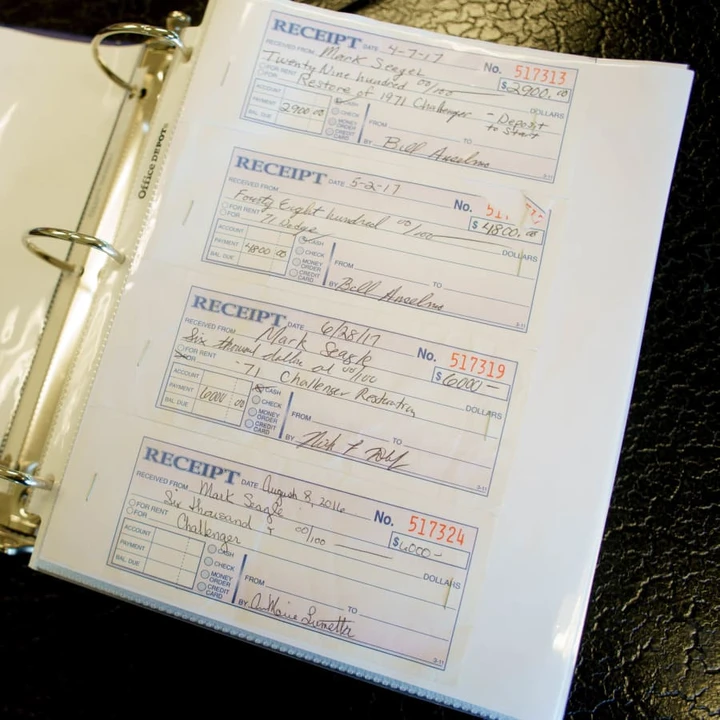 Office DEPOT
RECEIPT DATE 4-7-17 No. 517313
RECEIVED FROM Mark Seagel $2900.00
Twenty Nine hundred 00/100 DOLLARS
FOR RENT
FOR Restore of 1971 Challenger - Deposit to Start
ACCOUNT CASH
PAYMENT 2900 00 CHECK FROM TO
BAL. DUE MONEY ORDER
CREDIT CARD BY Bill Anselmo
3-11
RECEIPT DATE 5-2-17 No. 51
RECEIVED FROM $4800.00
Fourty Eight hundred 00/100 DOLLARS
FOR RENT
FOR 71 Dodge
ACCOUNT CASH
PAYMENT 4800 00 CHECK FROM TO
BAL. DUE MONEY ORDER
CREDIT CARD BY Bill Anselmo
3-11
RECEIPT DATE 6/28/17 No. 517319
RECEIVED FROM Mark Seagle $6000-
Six thousand dollar and 00/100 DOLLARS
FOR RENT
FOR '71 Challenger Restoration
ACCOUNT CASH
PAYMENT 6000 00 CHECK FROM TO
BAL. DUE MONEY ORDER
CREDIT CARD BY
3-11
RECEIPT DATE August 8, 2016 No. 517324
RECEIVED FROM Mark Seagle $6000-
Six thousand & 00/100 DOLLARS
FOR RENT
FOR Challenger
ACCOUNT CASH
PAYMENT CHECK FROM TO
BAL. DUE MONEY ORDER
CREDIT CARD BY
3-11